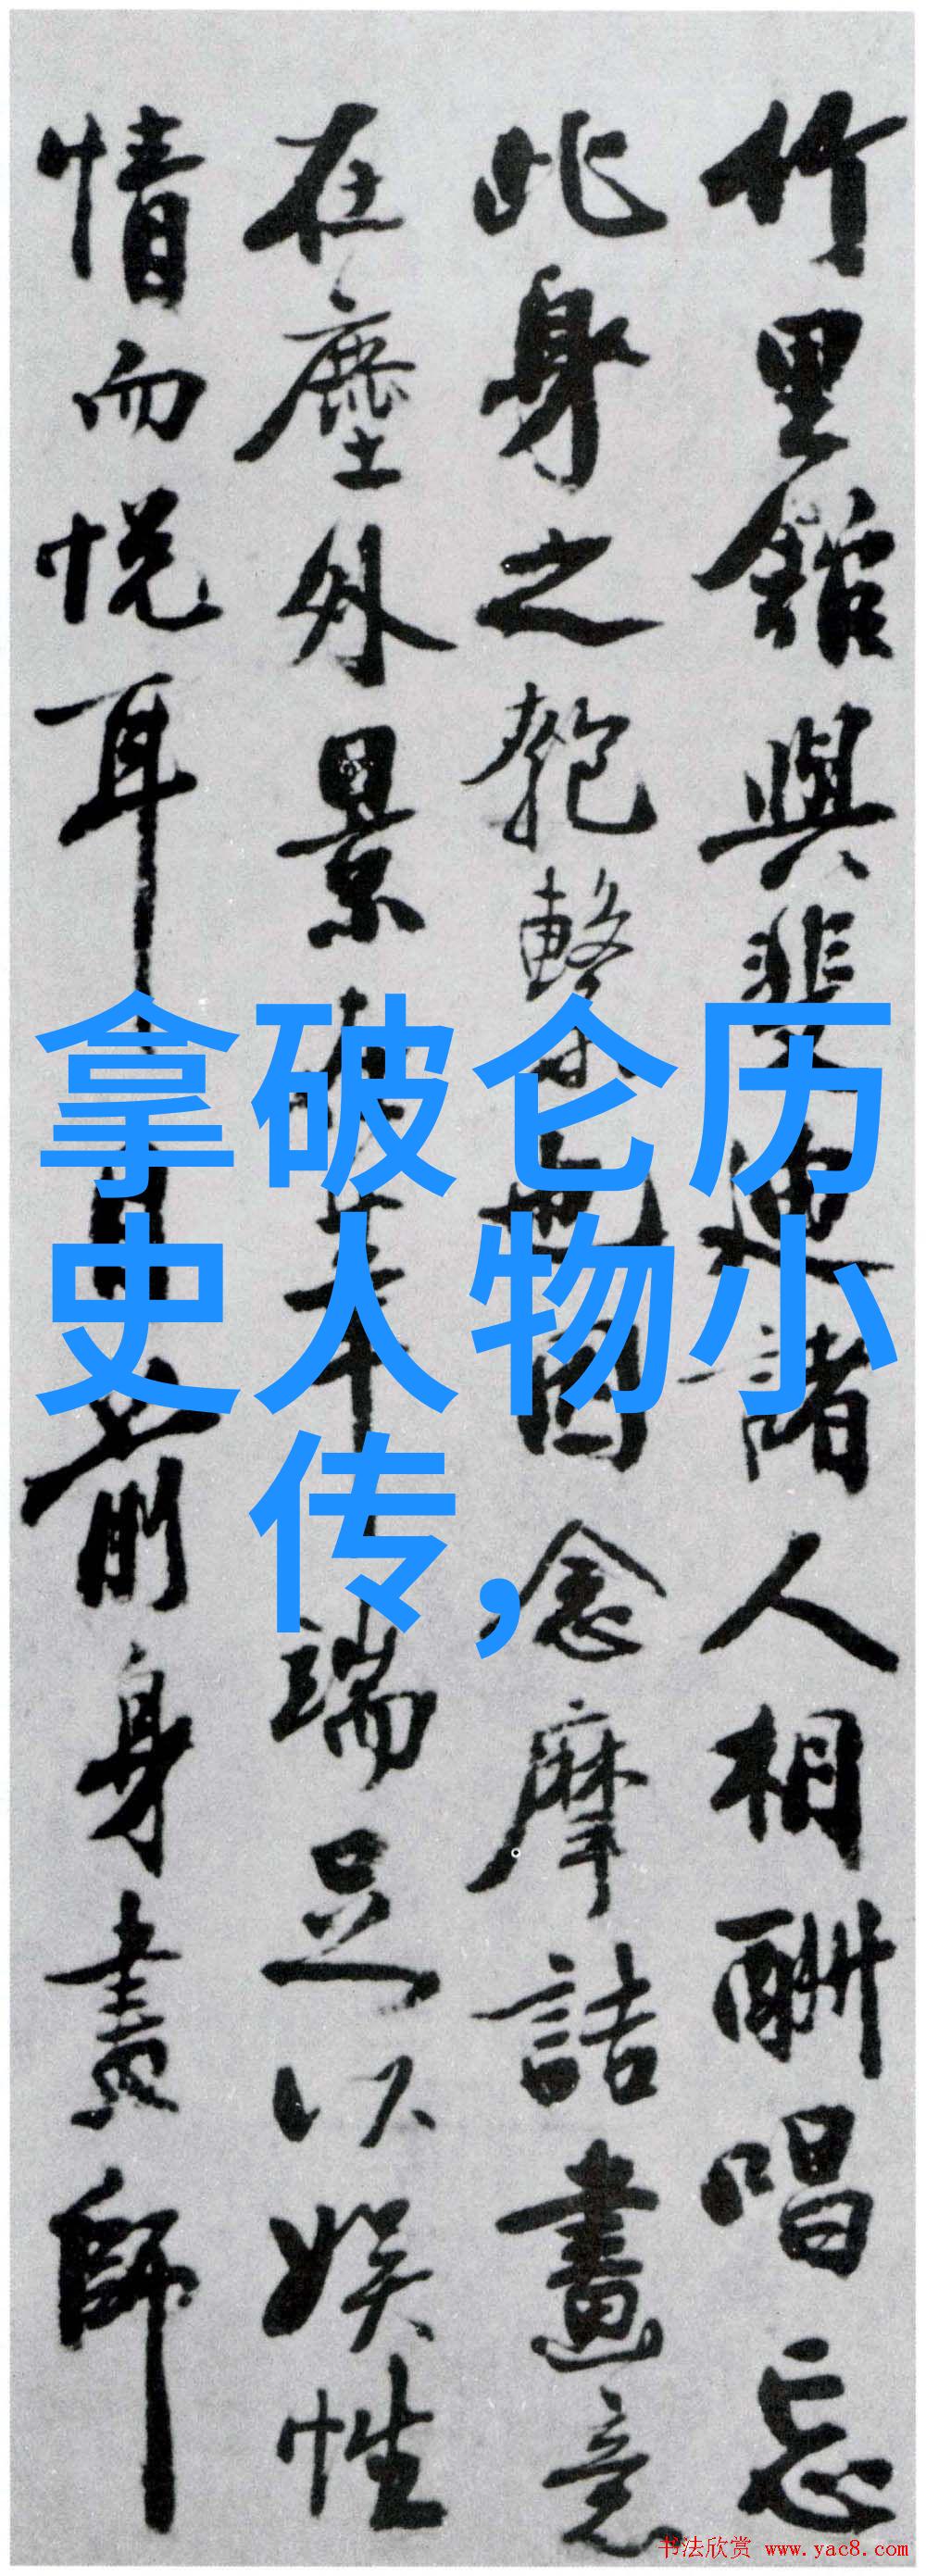 竹里館與斐迪諸人相酬唱忘
此身之匏繫也因念摩詰畫意
在塵外景
端足以娱性
情而悦耳
前身畫師
拿破仑历
史人物小
传，
书法欣赏 www.yac8.com